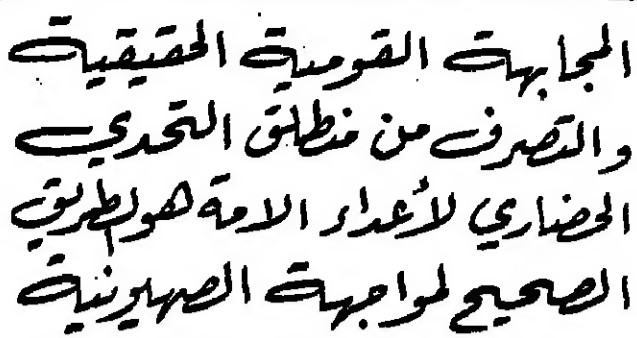 المجابهة القومية الحقيقية
والتصرف من منطلق التحدي
الحضاري لأعداء الامة هو الطريق
الصحيح لمواجهة الصهيونية